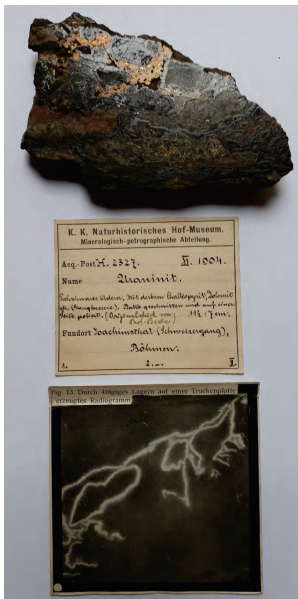 K. K. Naturhistorisches Hof-Museum.
Mineralogisch-petrographische Abteilung.
Acq.-Post H. 2327. XI. 1904.
Name Uraninit.
Pechschwarze Adern, mit derbem Chalkopyrit, Dolomit
Platte geschnitten und auf einer
Seite poliert. (Originalstück von
11½ : 7 cm.
Fundort Joachimsthal (Schweizergang),
Böhmen.
1. 2.–. V.
Fig. 13. Durch 4tägiges Lagern auf einer Trockenplatte
erzeugtes Radiogramm